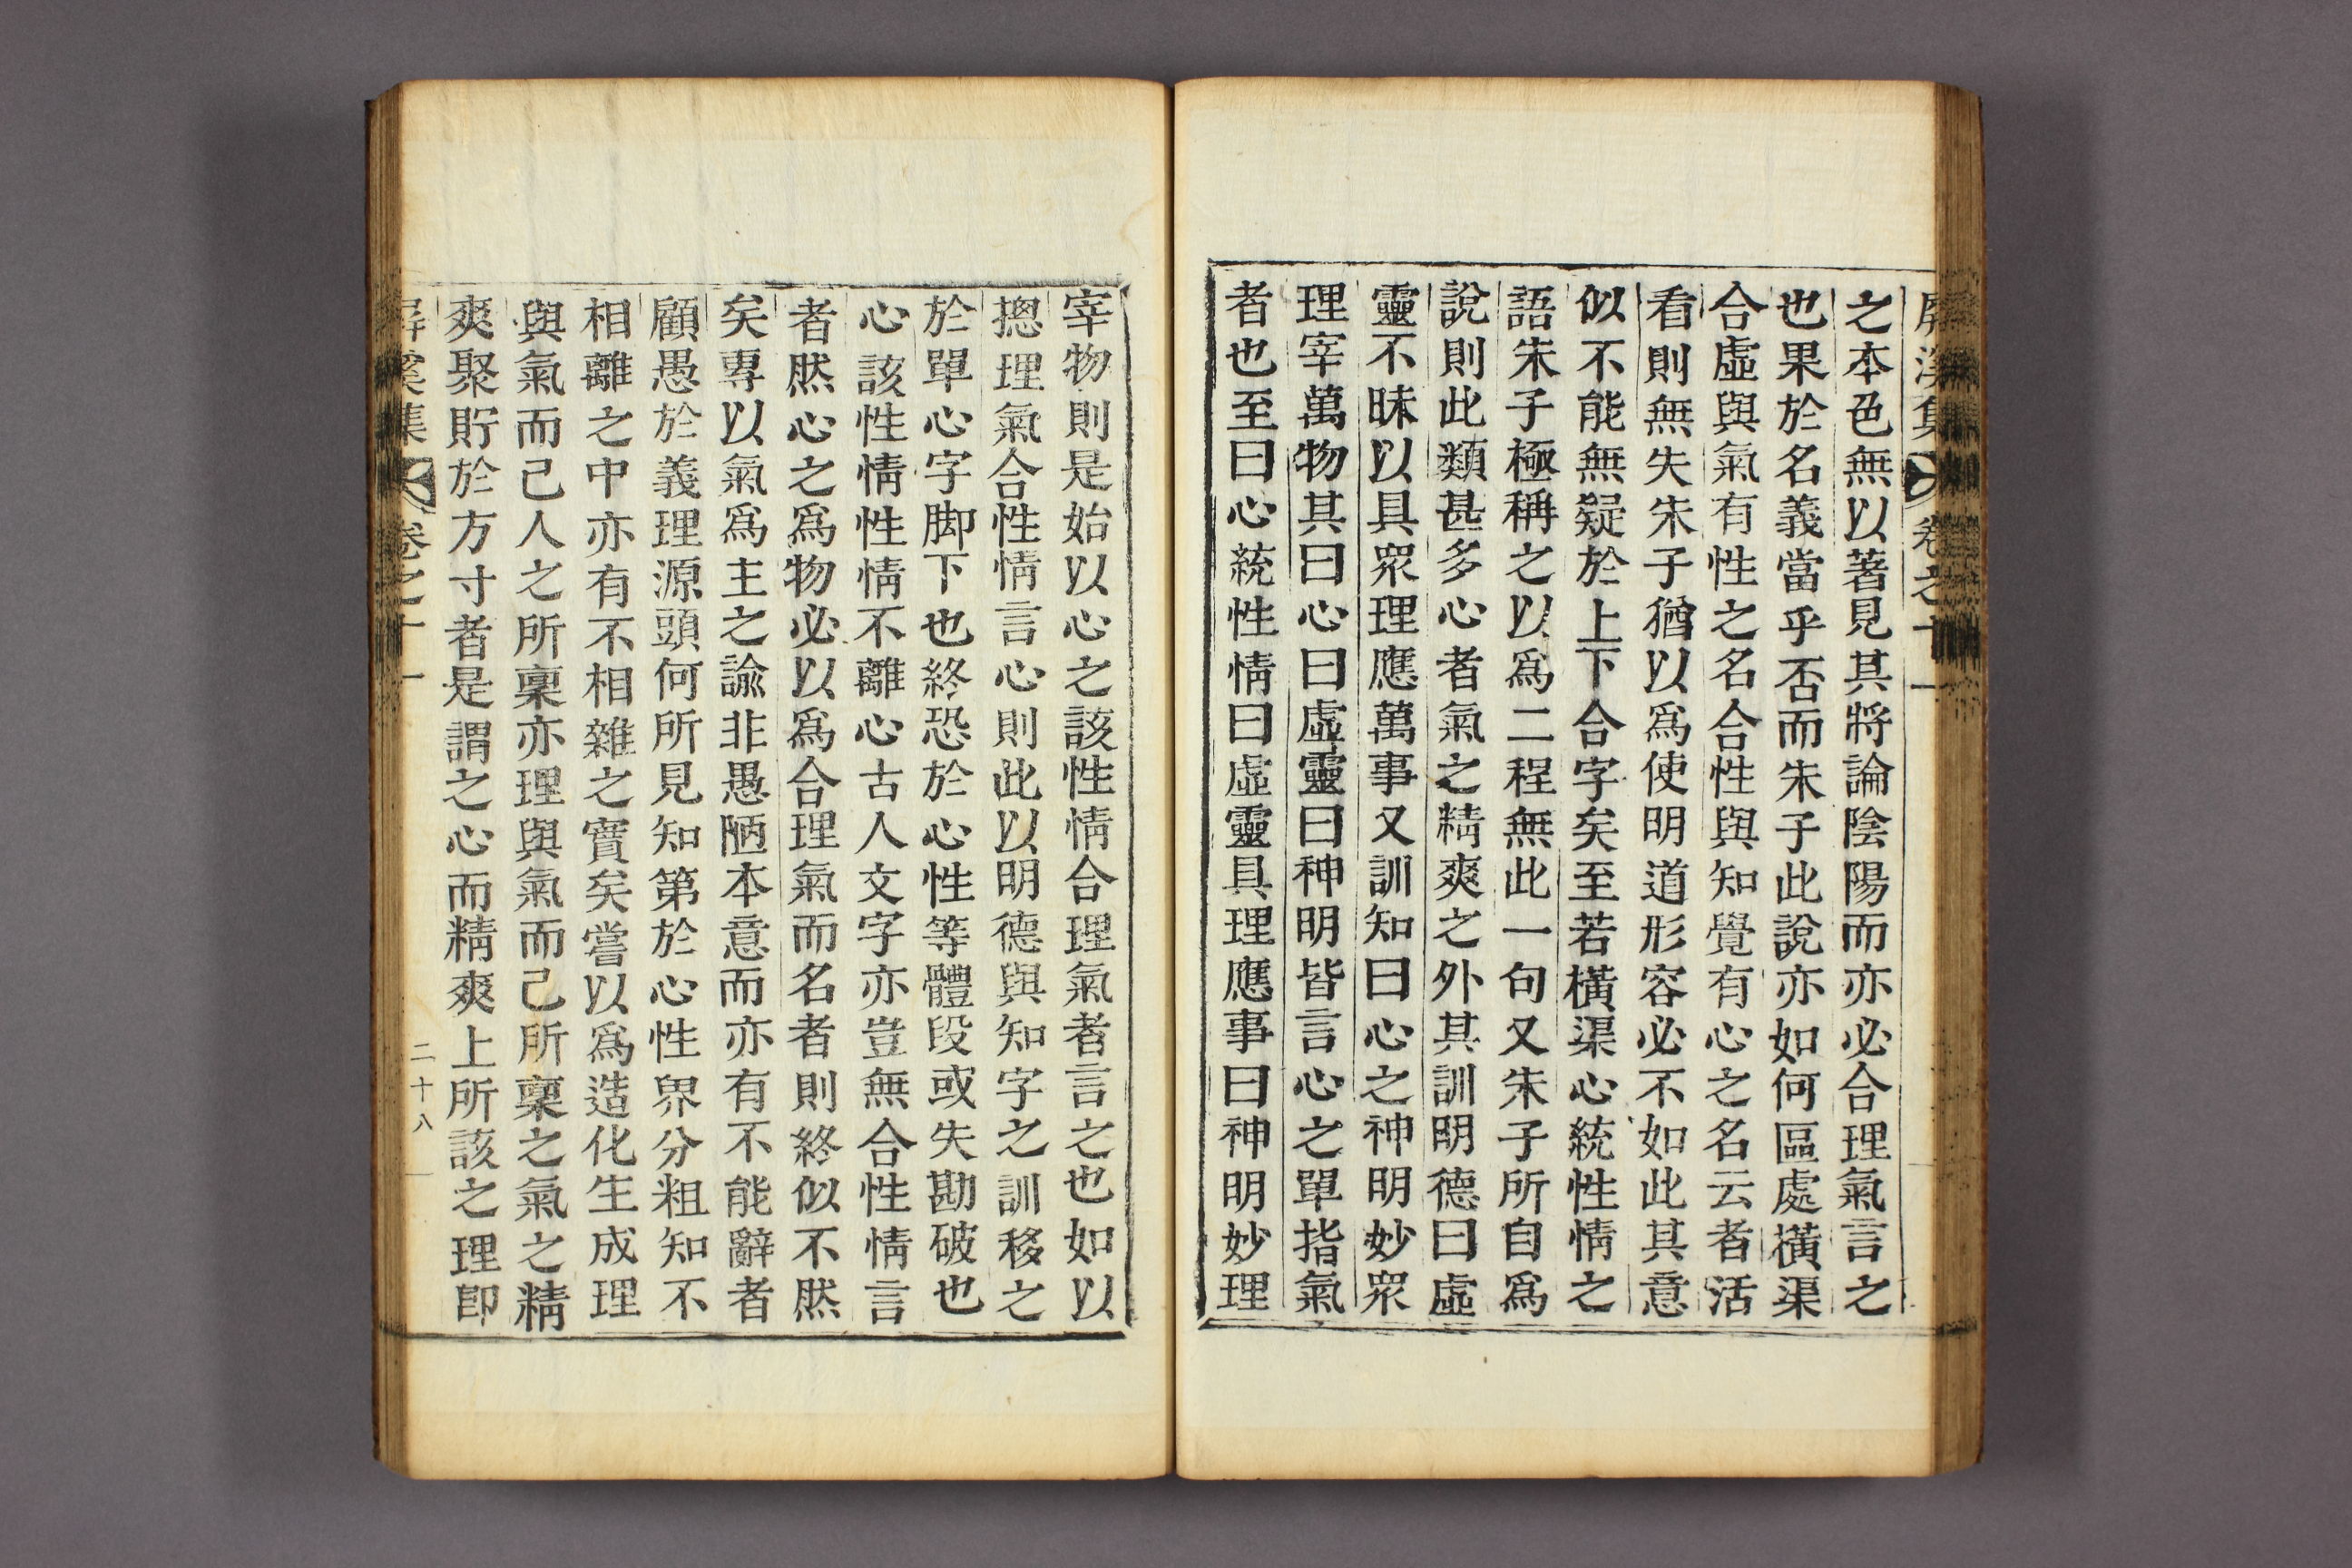 屛溪集 卷之十一
之本色無以著見其將論陰陽而亦必合理氣言之
也果於名義當乎否而朱子此說亦如何區處橫渠
合虛與氣有性之名合性與知覺有心之名云者活
看則無失朱子猶以爲使明道形容必不如此其意
似不能無疑於上下合字矣至若橫渠心統性情之
語朱子極稱之以爲二程無此一句又朱子所自爲
說則此類甚多心者氣之精爽之外其訓明德曰虛
靈不昧以具衆理應萬事又訓知曰心之神明妙衆
理宰萬物其曰心曰虛靈曰神明皆言心之單指氣
者也至曰心統性情曰虛靈具理應事曰神明妙理
宰物則是始以心之該性情合理氣者言之也如以
摠理氣合性情言心則此以明德與知字之訓移之
於單心字脚下也終恐於心性等體段或失勘破也
心該性情性情不離心古人文字亦豈無合性情言
者然心之爲物必以爲合理氣而名者則終似不然
矣專以氣爲主之諭非愚陋本意而亦有不能辭者
顧愚於義理源頭何所見知第於心性界分粗知不
相離之中亦有不相雜之實矣嘗以爲造化生成理
與氣而已人之所稟亦理與氣而已所稟之氣之精
爽聚貯於方寸者是謂之心而精爽上所該之理卽
屛溪集 卷之十一 二十八